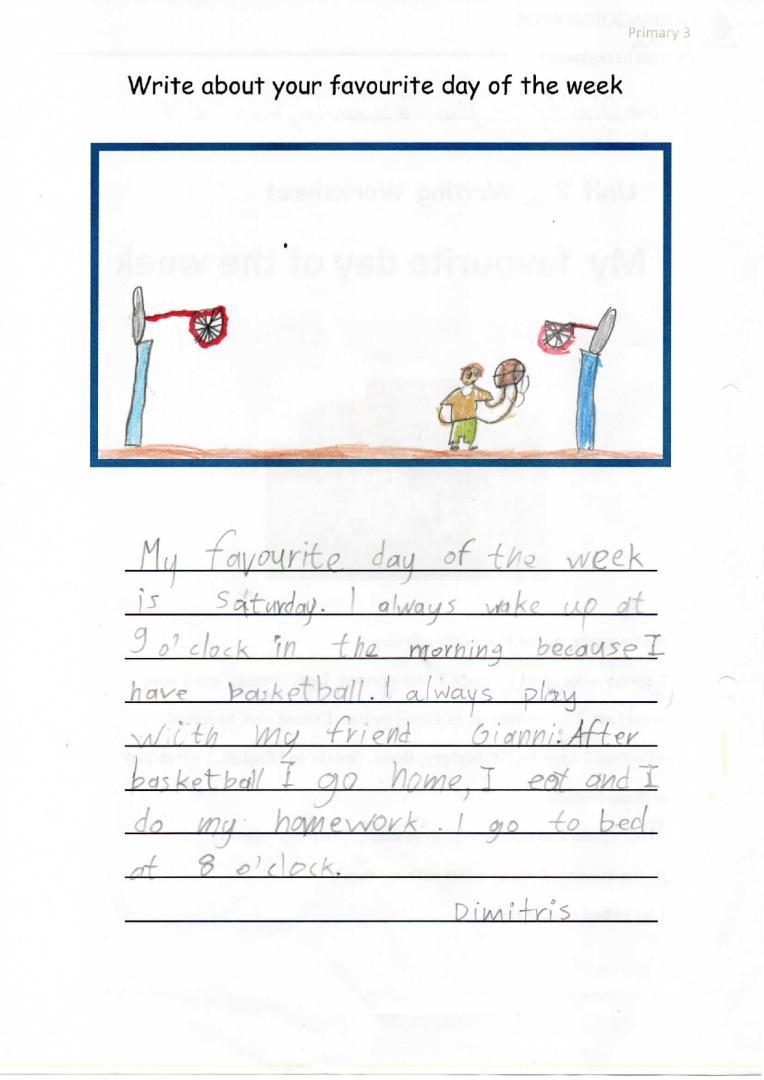 Primary 3
Write about your favourite day of the week
My favourite day of the week
is Saturday. I always wake up at
9 o'clock in the morning because I
have basketball. I always play
with my friend Gianni. After
basketball I go home, I eat and I
do my homework. I go to bed
at 8 o'clock.
Dimitris